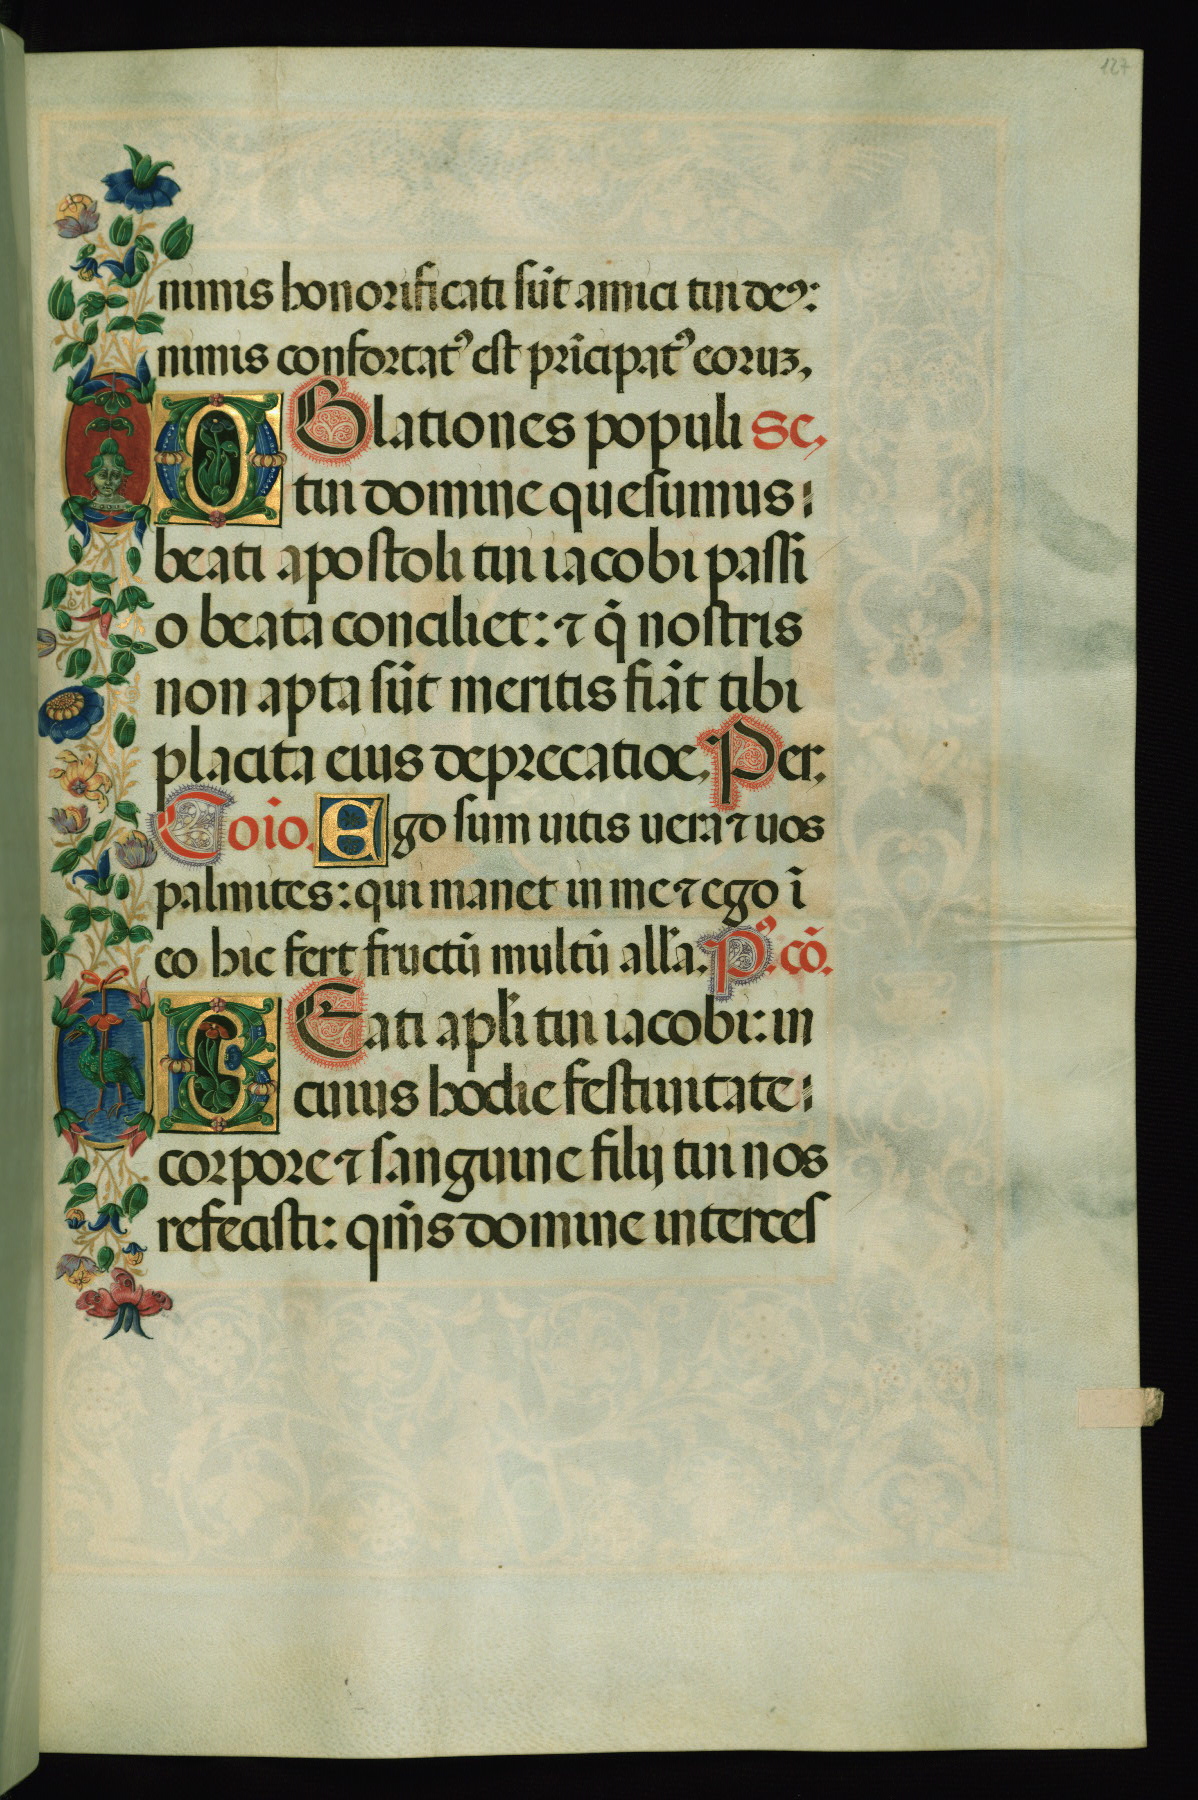 127
nimis honorificati sūt amici tui deꝰ:
nimis confortatꝰ est prīcipatꝰ eoruꝫ,
OBlationes populi Se,
tui domine quesumus:
beati apostoli tui iacobi passi
o beata conciliet: ⁊ q̄ nostris
non apta sūt meritis fiāt tibi
placita eius deprecatiōe, Per,
Coīo. Ego sum uitis uera ⁊ uos
palmites: qui manet in me ⁊ ego ī
eo hic fert fructū multū all'a. Pꝰ. cō.
BEati apl'i tui iacobi: in
cuius hodie festiuitate:
corpore ⁊ sanguine filij tui nos
refecisti: qm̄s domine interces